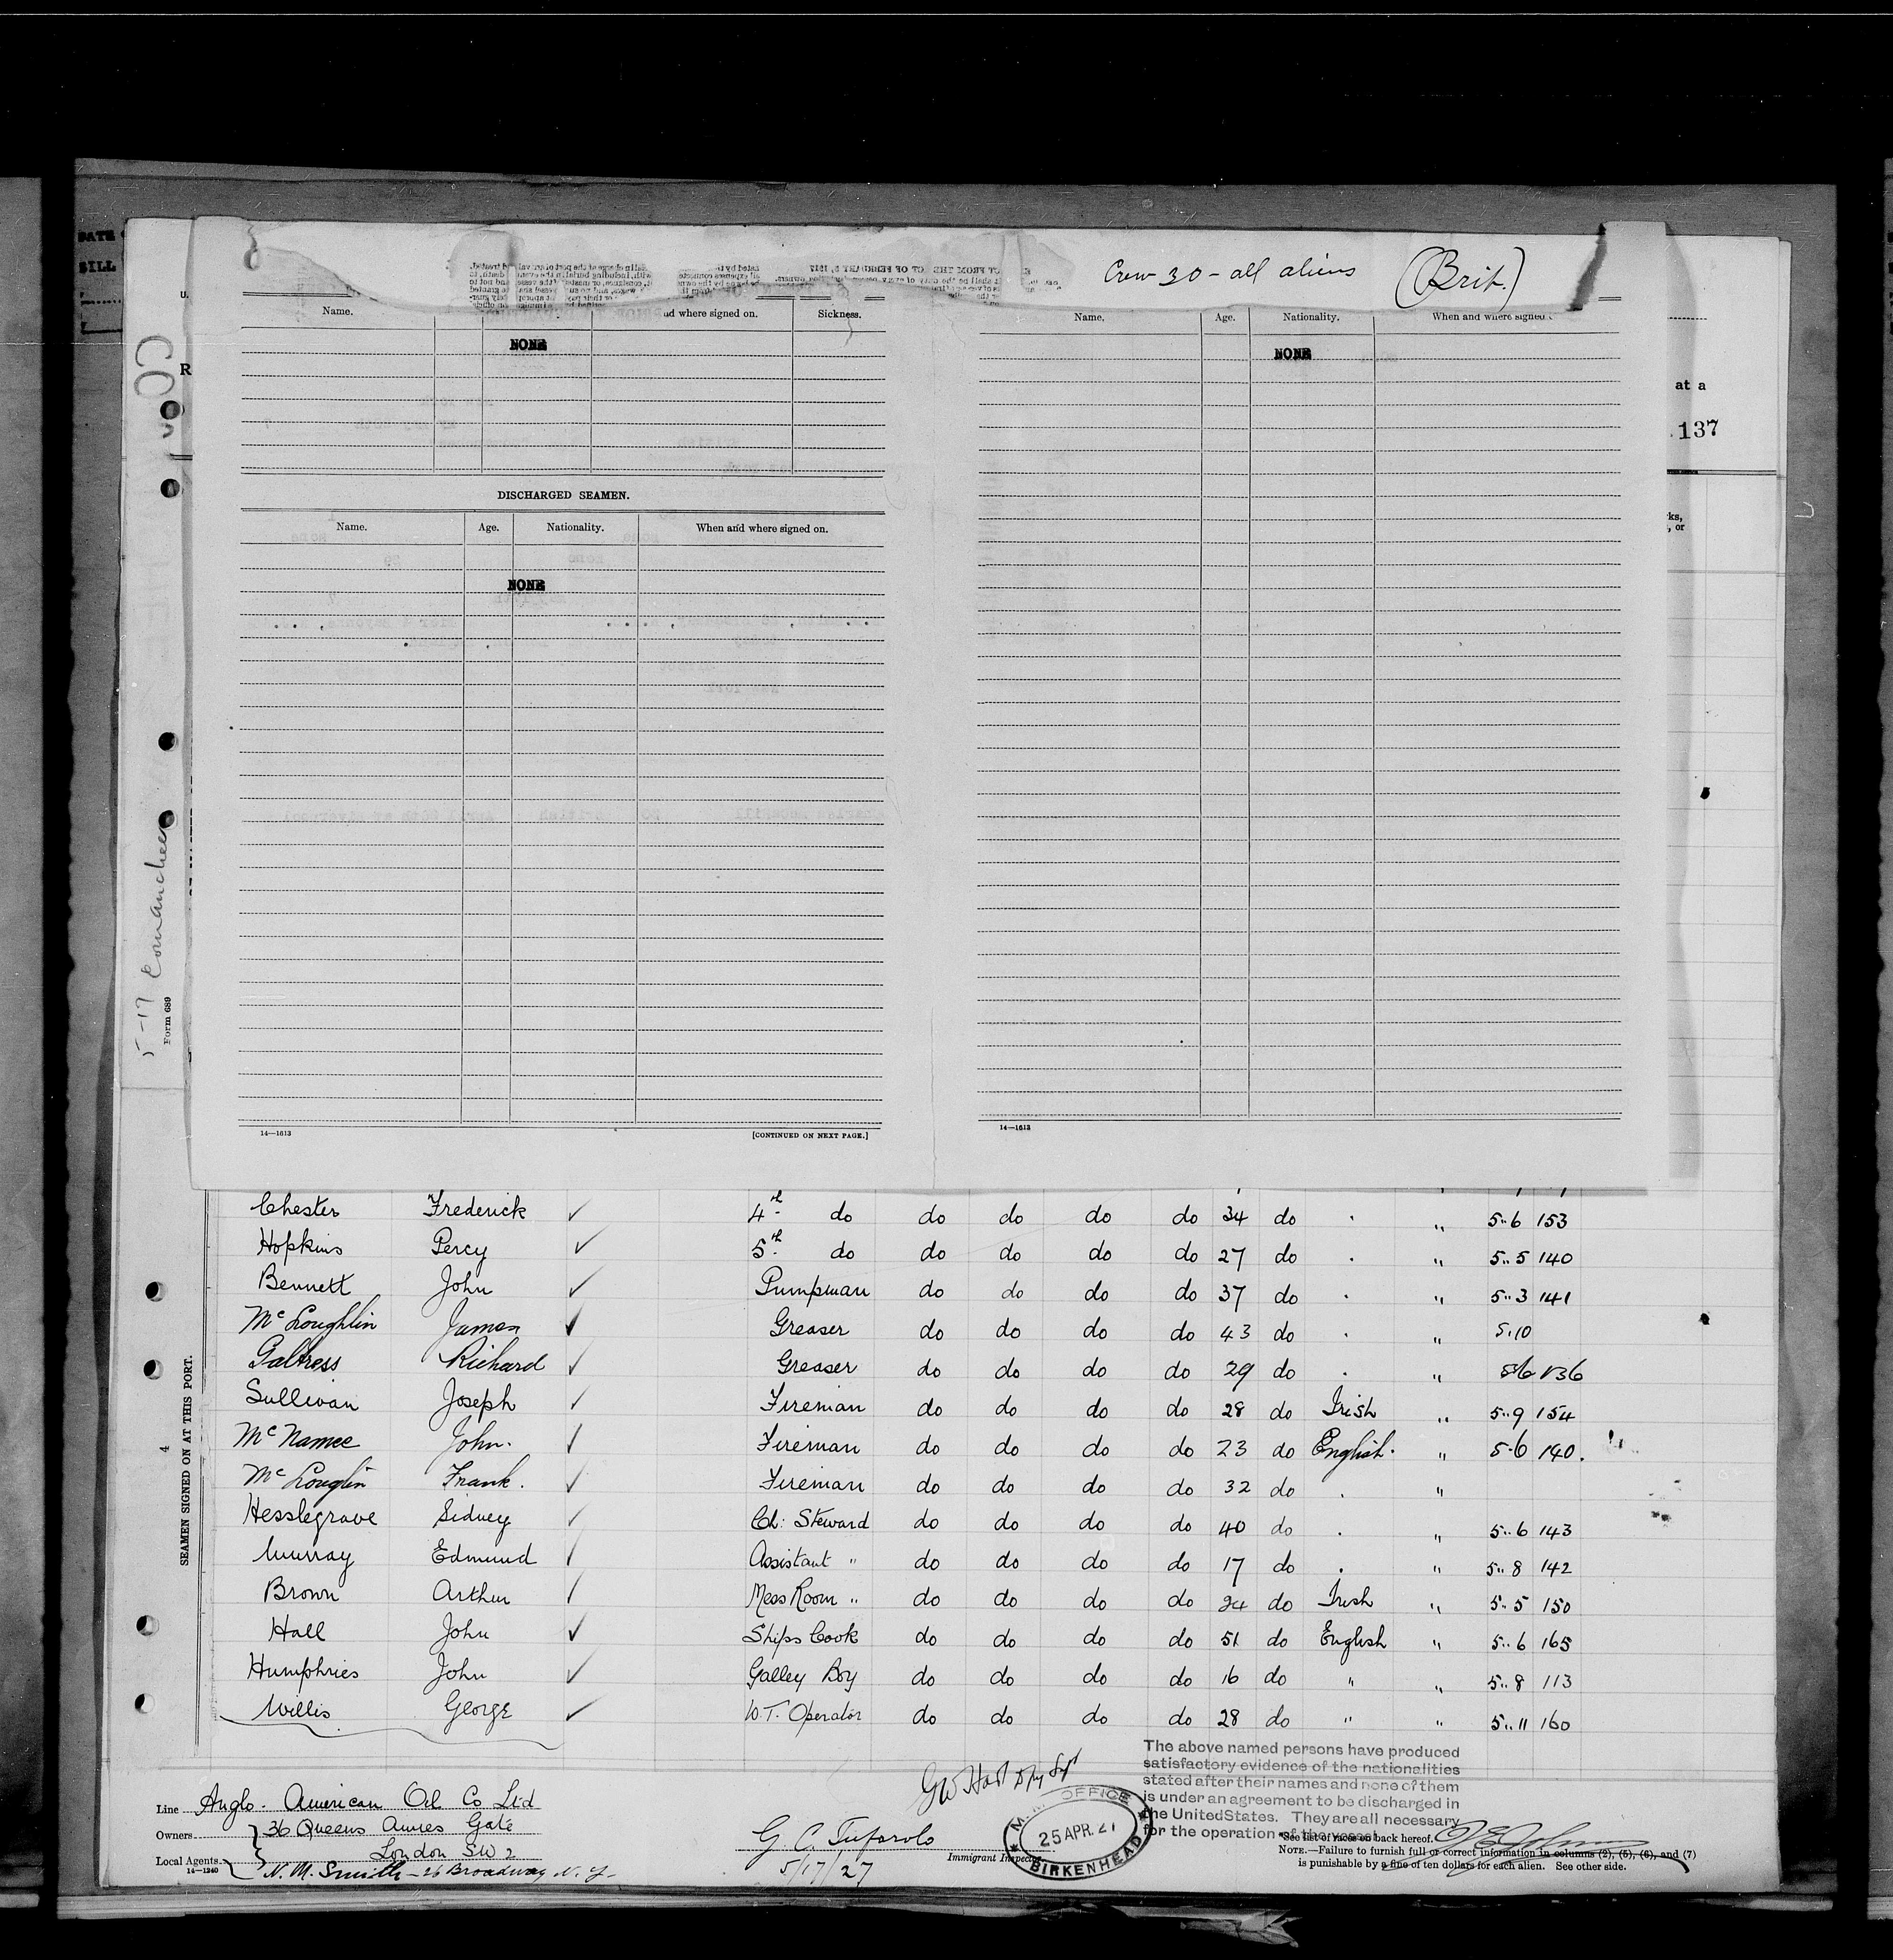 Crew 30 - all aliens (Brit.)
Name. and where signed on. Sickness.
NONE
DISCHARGED SEAMEN.
Name. Age. Nationality. When and where signed on.
NONE
14—1613 [CONTINUED ON NEXT PAGE.]
Name. Age. Nationality. When and where signed
NONE
14—1613
at a
137
ks,
, or
5-17 Comanchee
Form 689
4
SEAMEN SIGNED ON AT THIS PORT.
Chester Frederick ✓ 4th do do do do do 34 do . " 5"6 153
Hopkins Percy ✓ 5th do do do do do 27 do . " 5"5 140
Bennett John ✓ Pumpman do do do do 37 do . " 5"3 141
McLoughlin James ✓ Greaser do do do do 43 do . " 5.10
Galtress Richard ✓ Greaser do do do do 29 do . "
Sullivan Joseph ✓ Fireman do do do do 28 do Irish " 5"9 154
McNamee John. / Fireman do do do do 23 do English. " 5.6 140.
McLouglin Frank. ✓ Fireman do do do do 32 do . "
Hesslegrave Sidney ✓ Ch: Steward do do do do 40 do . " 5"6 143
Murray Edmund / Assistant " do do do do 17 do . " 5"8 142
Brown Arthur / Mess Room " do do do do 24 do Irish " 5"5 150
Hall John ✓ Ships Cook do do do do 51 do English " 5"6 165
Humphries John ✓ Galley Boy do do do do 16 do " " 5"8 113
Willis George ✓ W.T. Operator do do do do 28 do " " 5"11 160
The above named persons have produced
satisfactory evidence of the nationalities
stated after their names and none of them
is under an agreement to be discharged in
the United States. They are all necessary
for the operation of the vessel.
Line Anglo. American Oil Co Ltd
Owners 36 Queens Annes Gate
London SW 2
Local Agents N. M. Smith - 26 Broadway N. Y-
14—1240
5/17/27
Immigrant Inspector.
OFFICE
25 APR. 27
BIRKENHEAD
*See list of races on back hereof.
NOTE.—Failure to furnish full or correct information in columns (2), (5), (6), and (7)
is punishable by a fine of ten dollars for each alien. See other side.